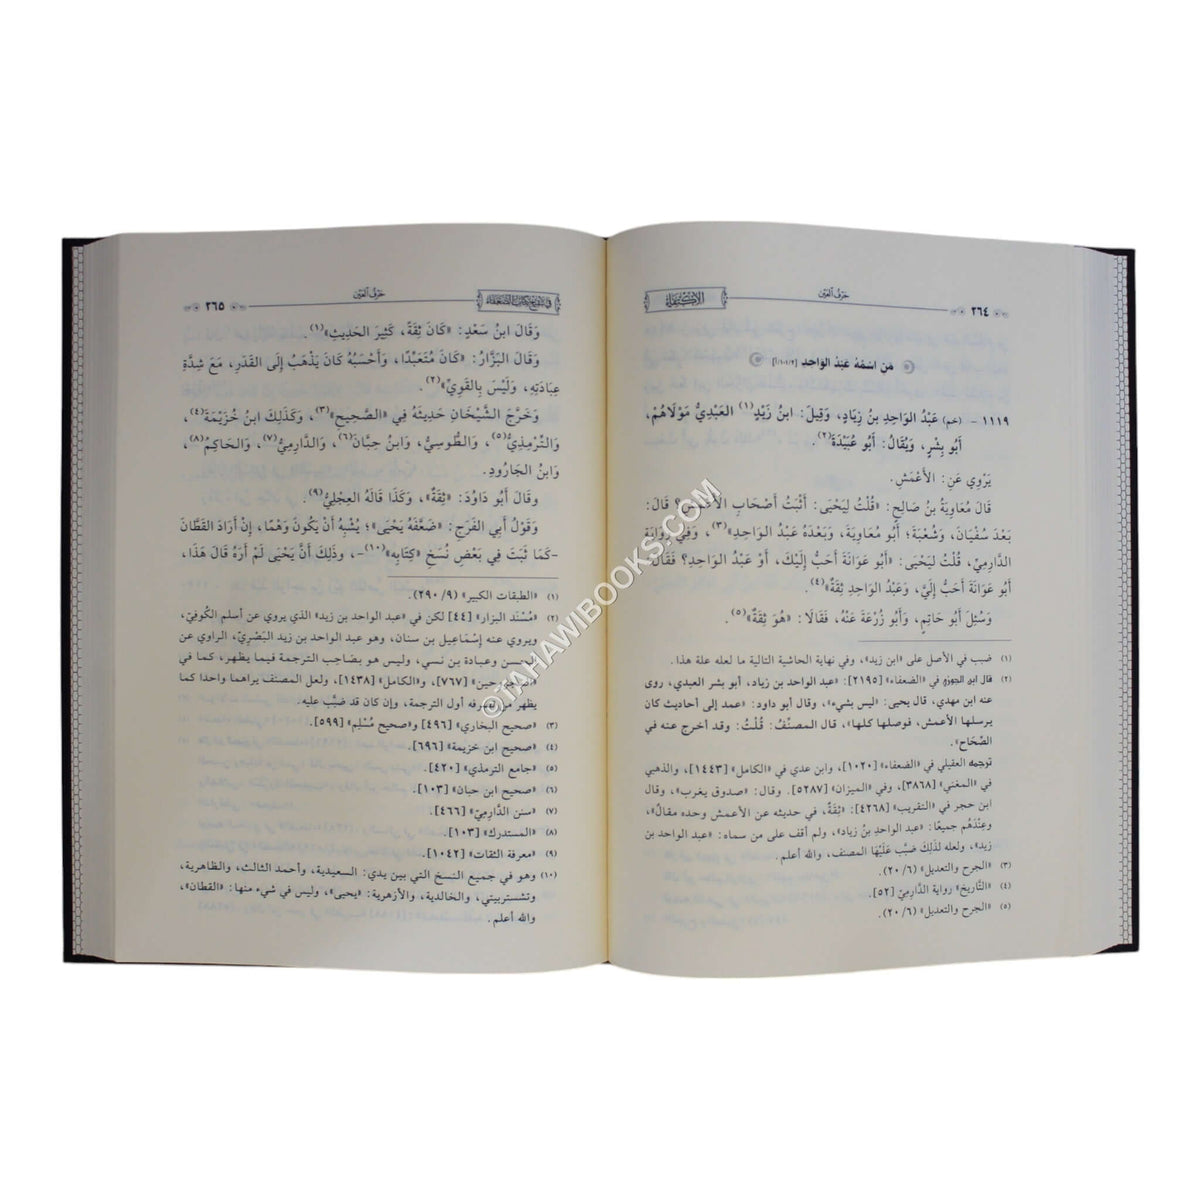 ٢٦٤
حَرْفُ العَيْن
الاكتفاء
مَنِ اسْمُهُ عَبْدُ الوَاحِدِ
١١١٩ - (خم) عَبْدُ الوَاحِدِ بنُ زِيَادٍ، وَقِيلَ: ابنُ زَيْدٍ(١) العَبْدِيُّ مَوْلَاهُمْ،
أَبُو بِشْرٍ، وَيُقَالُ: أَبُو عُبَيْدَةَ(٢).
يَرْوِي عَنِ: الأَعْمَشِ.
قَالَ مُعَاوِيَةُ بنُ صَالِحٍ: «قُلْتُ لِيَحْيَى: أَثْبَتُ أَصْحَابِ الأَعْمَشِ؟ قَالَ:
بَعْدَ سُفْيَانَ، وَشُعْبَةَ؛ أَبُو مُعَاوِيَةَ، وَبَعْدَهُ عَبْدُ الوَاحِدِ»(٣)، وَفِي رِوَايَةِ
الدَّارِمِيِّ، قُلْتُ لِيَحْيَى: «أَبُو عَوَانَةَ أَحَبُّ إِلَيْكَ، أَوْ عَبْدُ الوَاحِدِ؟ فَقَالَ:
أَبُو عَوَانَةَ أَحَبُّ إِلَيَّ، وَعَبْدُ الوَاحِدِ ثِقَةٌ»(٤).
وَسُئِلَ أَبُو حَاتِمٍ، وَأَبُو زُرْعَةَ عَنْهُ، فَقَالَا: «هُوَ ثِقَةٌ»(٥).
(١) ضبب في الأصل على «ابن زيد»، وفي نهاية الحاشية التالية ما لعله علة هذا.
(٢) قال ابن الجوزي في «الضعفاء» [٢١٩٥]: «عبد الواحد بن زياد، أبو بشر العبدي، روى
عنه ابن مهدي، قال يحيى: ليس بشيء»، وقال أبو داود: «عمد إلى أحاديث كان
يرسلها الأعمش، فوصلها كلها»، قال المصنِّفُ: قُلْتُ: وقد أخرج عنه في
الصِّحَاح».
ترجمه العقيلي في «الضعفاء» [١٠٢٠]، وابن عدي في «الكامل» [١٤٤٣]، والذهبي
في «المغني» [٣٨٦٨]، وفي «الميزان» [٥٢٨٧]. وقال: «صدوق يغرب»، وقال
ابن حجر في «التقريب» [٤٢٦٨]: «ثِقَةٌ، في حديثه عن الأعمش وحده مقال»،
وعِنْدَهُم جميعًا: «عبد الواحدِ بنُ زياد»، ولم أقف على من سماه: «عبد الواحد بن
زيد»، ولعله لذَلِكَ ضبَّب عَلَيْهَا المصنف، والله أعلم.
(٣) «الجرح والتعديل» (٢٠/٦).
(٤) «التَّارِيخ» رواية الدَّارِمِيّ [٥٢].
(٥) «الجرح والتعديل» (٢٠/٦).
حَرْفُ العَيْن
٢٦٥
وَقَالَ ابنُ سَعْدٍ: «كَانَ ثِقَةً، كَثِيرَ الحَدِيثِ»(١).
وَقَالَ البَزَّارُ: «كَانَ مُتَعَبِّدًا، وَأَحْسَبُهُ كَانَ يَذْهَبُ إِلَى القَدَرِ، مَعَ شِدَّةِ
عِبَادَتِهِ، وَلَيْسَ بِالقَوِيِّ»(٢).
وَخَرَّجَ الشَّيْخَانِ حَدِيثَهُ فِي «الصَّحِيحِ»(٣)، وَكَذَلِكَ ابنُ خُزَيْمَةَ(٤)،
وَالتِّرْمِذِيُّ(٥)، وَالطُّوسِيُّ، وَابنُ حِبَّانَ(٦)، وَالدَّارِمِيُّ(٧)، وَالحَاكِمُ(٨)،
وَابنُ الجَارُودِ.
وَقَالَ أَبُو دَاوُدَ: «ثِقَةٌ»، وَكَذَا قَالَهُ العِجْلِيُّ(٩).
وَقَوْلُ أَبِي الفَرَجِ: «ضَعَّفَهُ يَحْيَى»؛ يُشْبِهُ أَنْ يَكُونَ وَهْمًا، إِنْ أَرَادَ القَطَّانَ
-كَمَا ثَبَتَ فِي بَعْضِ نُسَخِ «كِتَابِهِ»(١٠)-، وَذَلِكَ أَنَّ يَحْيَى لَمْ أَرَهُ قَالَ هَذَا،
(١) «الطبقات الكبير» (٢٩٠/٩).
(٢) «مُسْنَد البزار» [٤٤] لكن في «عبد الواحد بن زيد» الذي يروي عن أسلم الكُوفِيّ،
ويروي عنه إسْمَاعيل بن سنان، وهو عبد الواحد بن زيد البَصْرِيّ، الراوي عن
الحسن وعبادة بن نسي، وليس هو بصَاحِب الترجمة فيما يظهر، كما في
«المجروحين» [٧٦٧]، و«الكامل» [١٤٣٨]، ولعل المصنف يراهما واحدا كما
يظهر من تصرفه أول الترجمة، وإن كان قد ضبَّب عليه.
(٣) «صحيح البخاري» [٤٩٦] و«صحيح مُسْلِم» [٥٩٩].
(٤) «صحيح ابن خزيمة» [٦٩٦].
(٥) «جامع الترمذي» [٤٢٠].
(٦) «صحيح ابن حبان» [١٠٣].
(٧) «سنن الدَّارِمِيّ» [٤٦٦].
(٨) «المستدرك» [١٠٣].
(٩) «معرفة الثقات» [١٠٤٢].
(١٠) وهو في جميع النسخ التي بين يدي: السعيدية، وأحمد الثالث، والظاهرية،
وتشستربيتي، والخالدية، والأزهرية: «يحيى»، وليس في شيء منها: «القطان»،
والله أعلم.
©TAHAWIBOOKS.COM